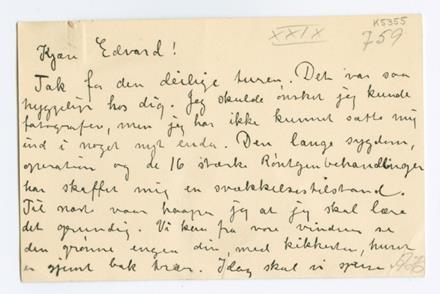 K5355
XXIX
759
Kjære Edvard!
Tak for den deilige turen. Det var saa
hyggeligt hos dig. Jeg skulde ønsket jeg kunde
fotografere, men jeg har ikke kunnet sætte mig
ind i noget nyt enda. Den lange sygdom,
operation og de 16 stærke Röntgenbehandlinger
har skaffet mig en svækkelsestilstand.
Til næste vaar haaper jeg at jeg skal lære
det ordentlig. Vi kan fra vore vinduer se
den grønne engen din, med kikkerten, huset
er gjemt bak trær. Idag skal vi spise